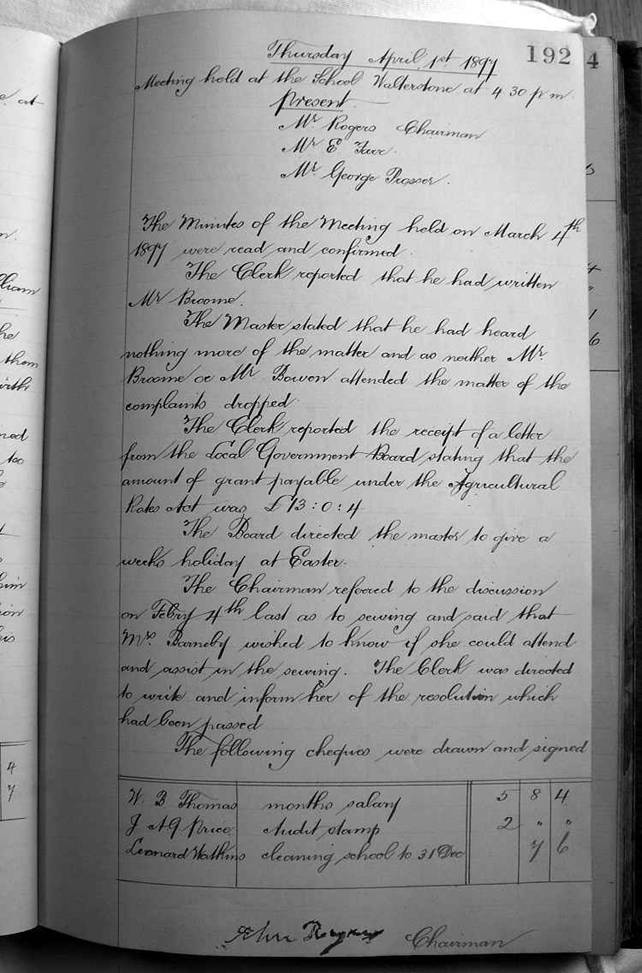 192
4
Thursday April 1st 1897
Meeting held at the School Walterstone at 4 30 p m
Present
Mr Rogers Chairman
Mr E Farr.
Mr George Prosser.
The Minutes of the Meeting held on March 4th
1897 were read and confirmed.
The Clerk reported that he had written
Mr Broome.
The Master stated that he had heard
nothing more of the matter and as neither Mr
Broome or Mr Bowen attended the matter of the
complaints dropped.
The Clerk reported the receipt of a letter
from the Local Government Board stating that the
amount of grant payable under the Agricultural
Rates Act was £13:0:4
The Board directed the master to give a
weeks holiday at Easter.
The Chairman referred to the discussion
on Febry 4th last as to sewing and said that
Mrs Barneby wished to know if she could attend
and assist in the sewing. The Clerk was directed
to write and inform her of the resolution which
had been passed
The following cheques were drawn and signed
W. B Thomas months salary 5 8 4
J A G Price Audit stamp 2 " "
Leonard Watkins cleaning school to 31 Dec 7 6
John Rogers Chairman